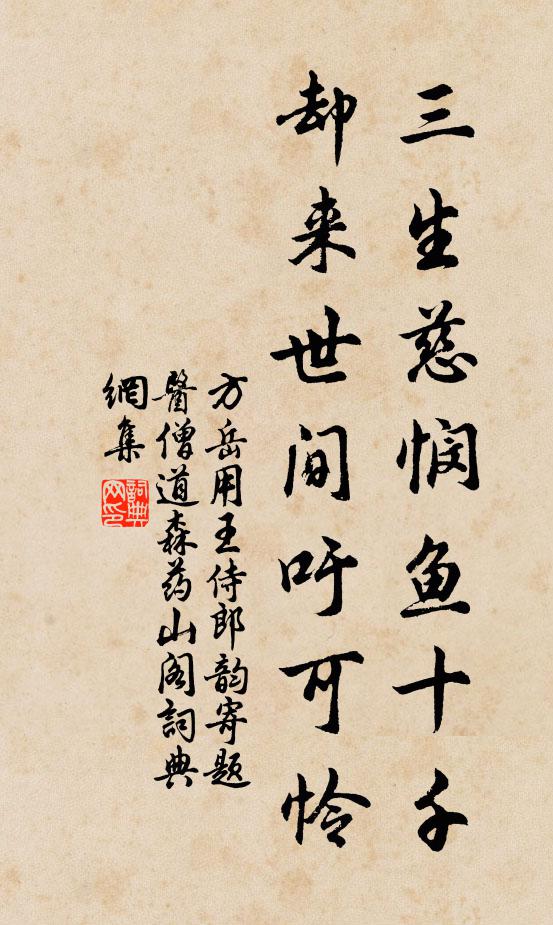 三生慈悯鱼十千
却来世间吁可怜
方岳用王侍郎韵寄题
醫僧道森药山阁詞典
網集
詞典
网印